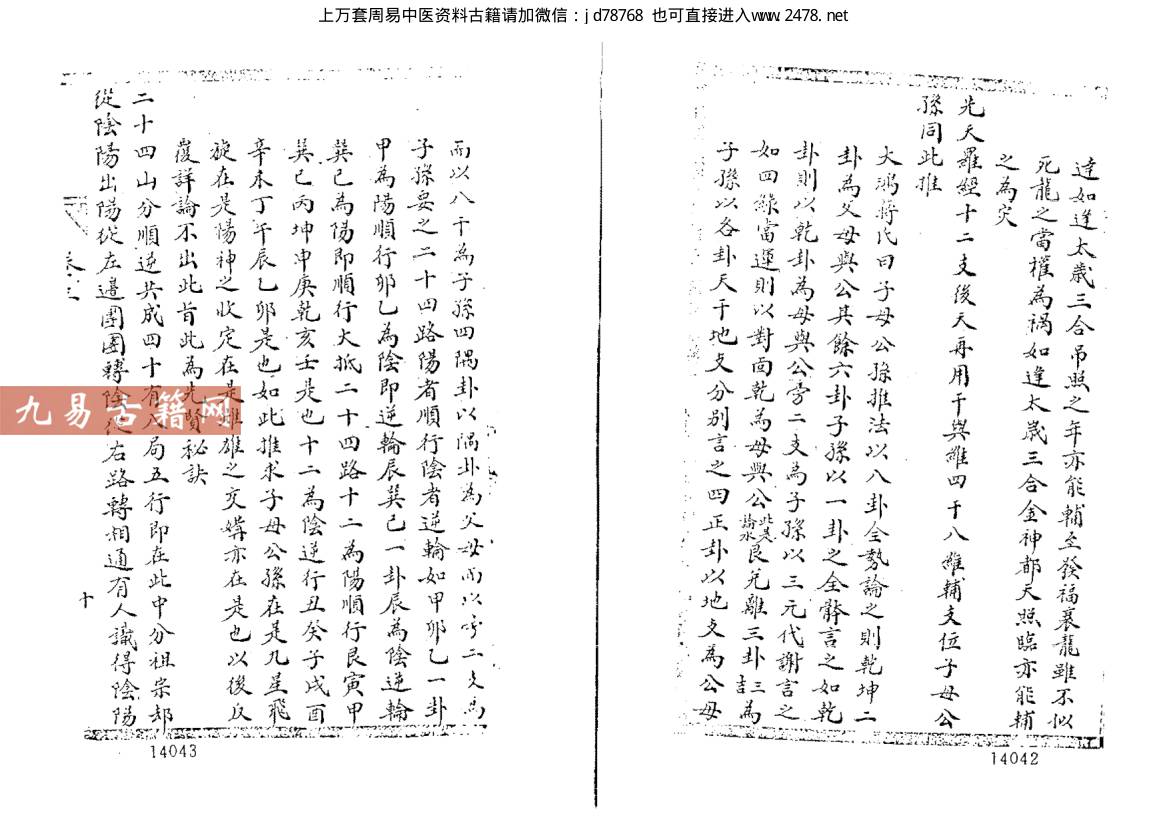 上万套周易中医资料古籍请加微信：jd78768 也可直接进入www.2478.net
逹如逢太歲三合吊照之年亦能輔至發福衰龍雖不似
死龍之當權為祸如逢太歲三合金神都天照臨亦能輔
之為灾
先天羅經十二支後天再用干與維四干八維輔支位子母公
孫同此推
大鴻蒋氏曰子母公孫推法以八卦全势論之則乾坤二
卦為父母與公其餘六卦子孫以一卦之全體言之如乾
卦則以乾卦為母與公旁二支為子孫以三元代謝言之
如四綠當運則以對面乾為母與公此是論水艮兌離三卦三吉為
子孫以各卦天干地支分别言之四正卦以地支為公母
14042
而以八干為子孫四隅卦以隅卦為父母而以字二支為
子孫要之二十四路陽者順行陰者逆輪如甲卯乙一卦
甲為陽順行卯乙為陰即逆輪辰巽巳一卦辰為陰逆輪
巽巳為陽即順行大抵二十四路十二為陽順行艮寅甲
巽巳丙坤申庚乾亥壬是也十二為陰逆行丑癸子戌酉
辛未丁午辰乙卯是也如此推求子母公孫在是九星飛
旋在是陽神之收定在是雄之交媾亦在是也以後反
覆詳論不出此旨此為先賢秘訣
二十四山分順逆共成四十有八局五行即在此中分祖宗却
從陰陽出陽從左邉團團轉陰從右路轉相通有人識得陰陽
卷之三
十
14043
九易古籍网